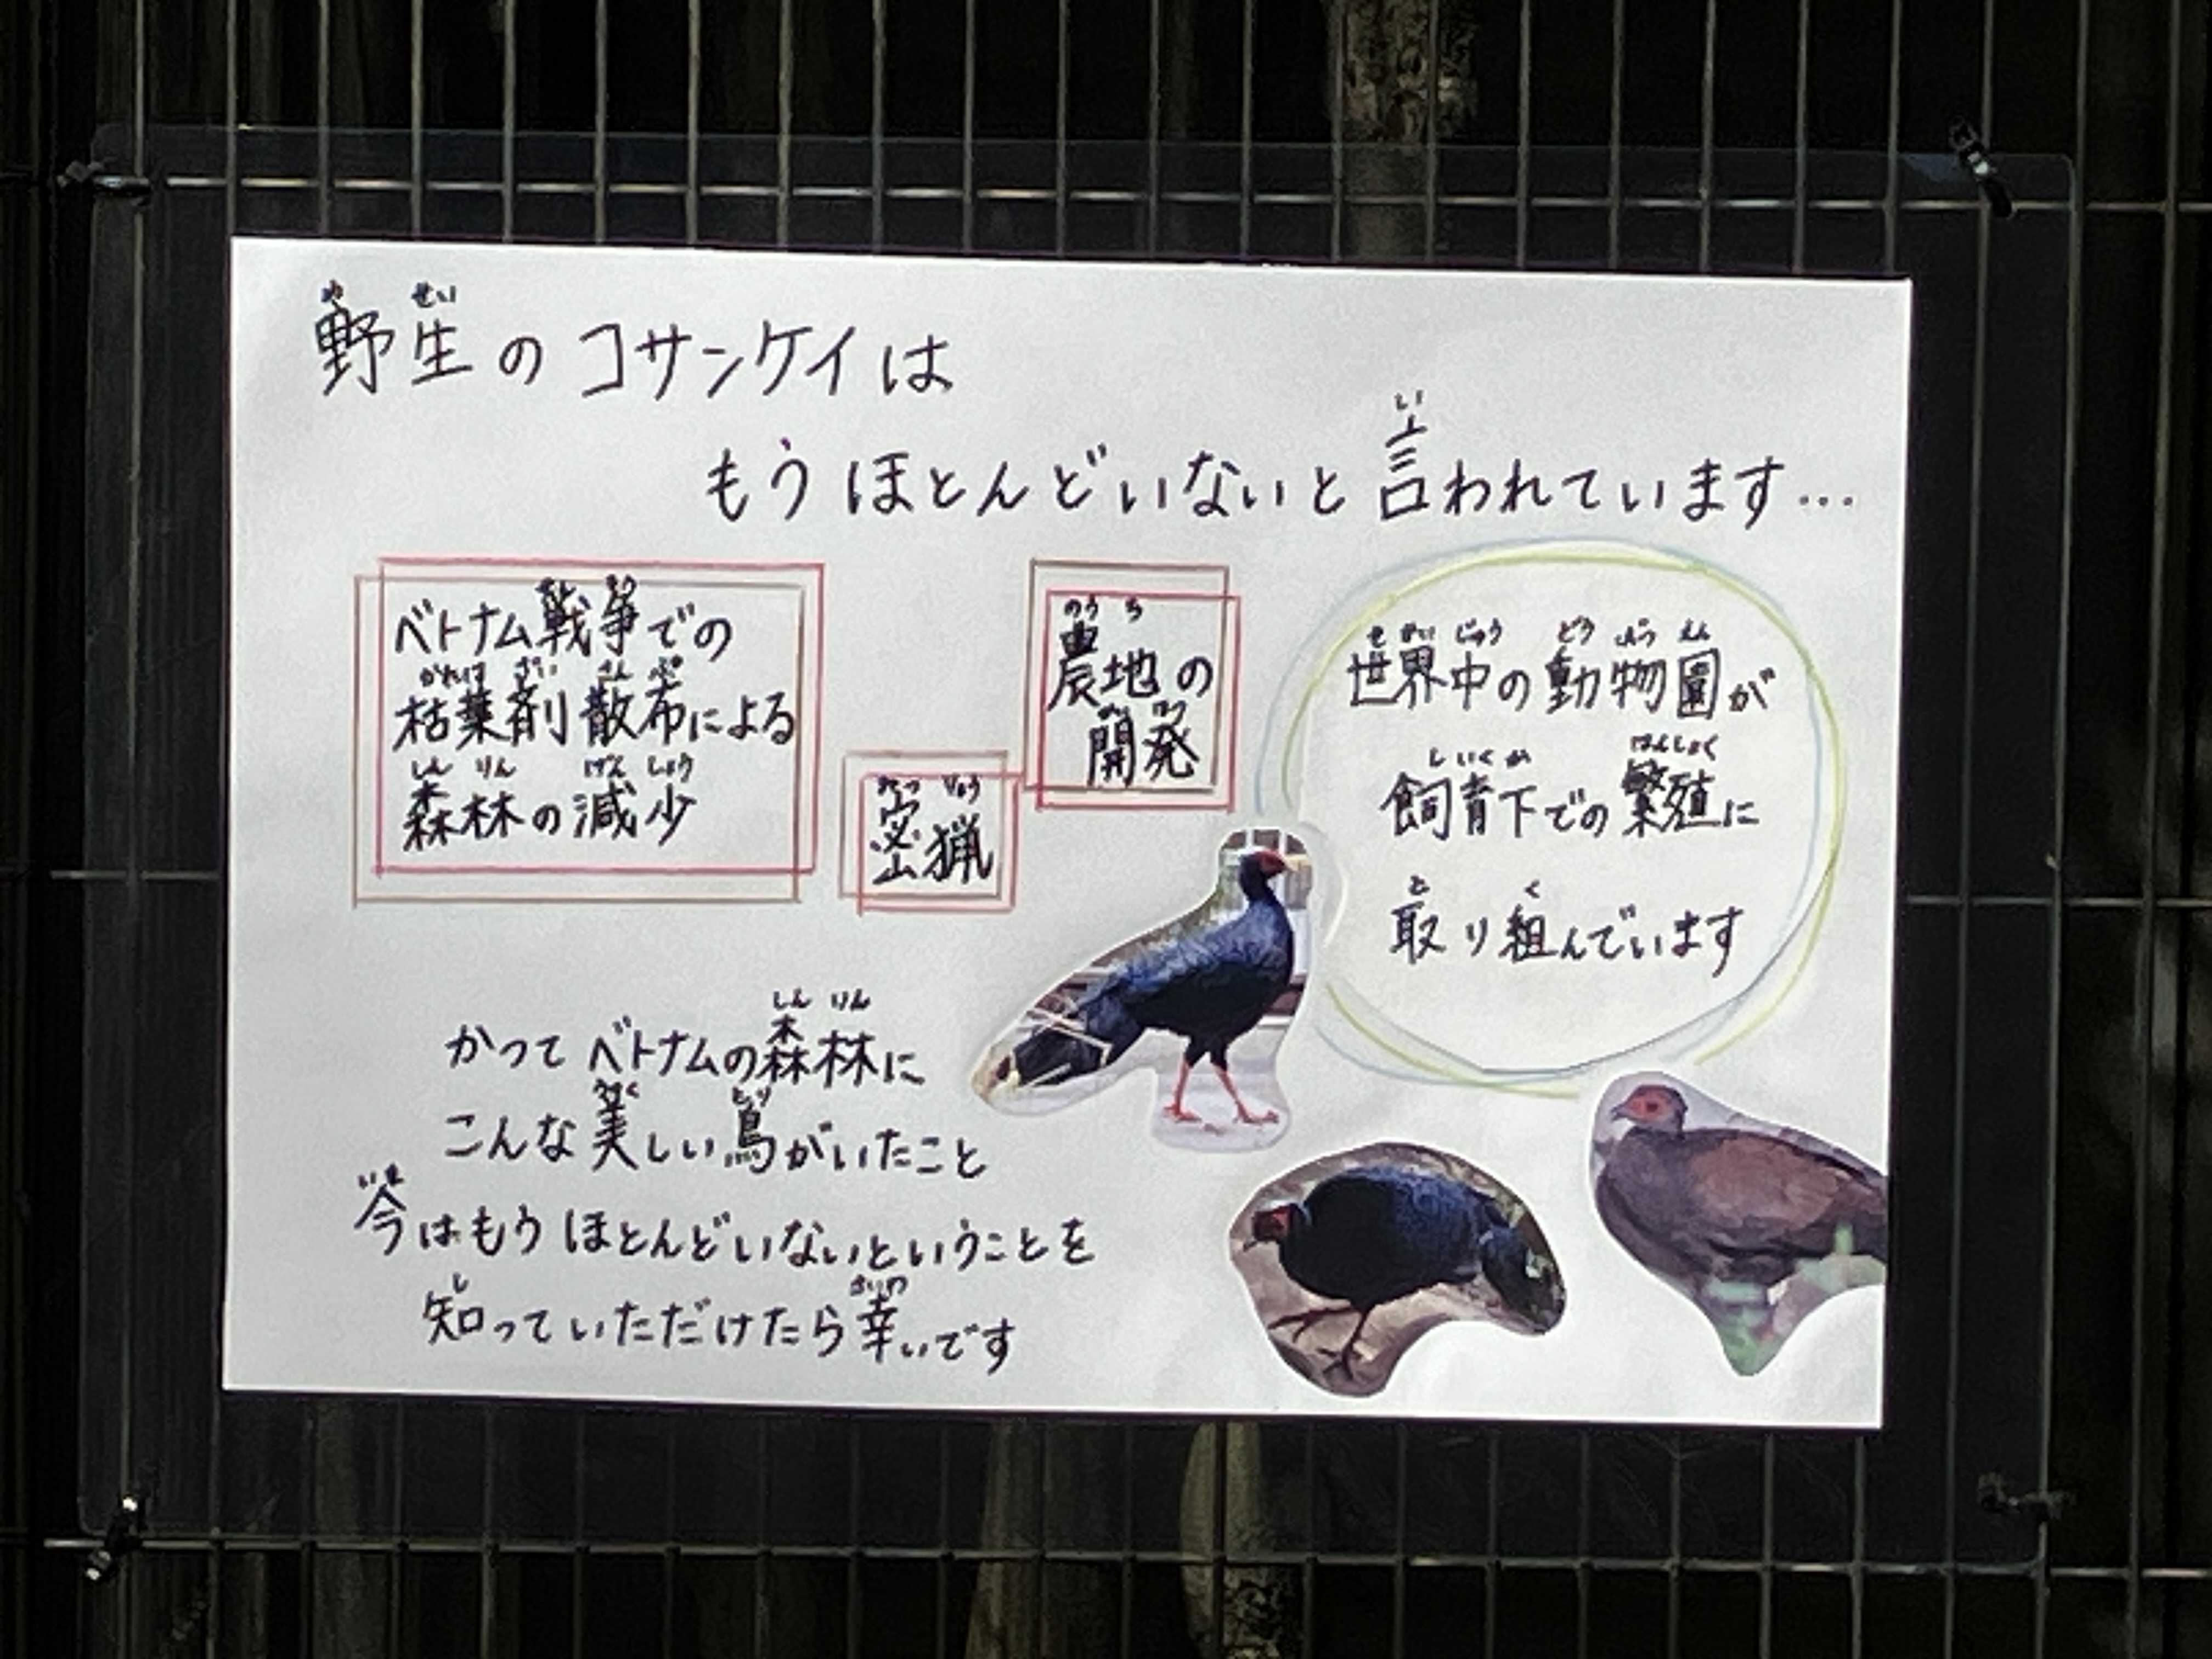 野生のコサンケイは
もうほとんどいないと言われています…
ベトナム戦争での
枯葉剤散布による
森林の減少
密猟
農地の
開発
世界中の動物園が
飼育下での繁殖に
取り組んでいます
かつてベトナムの森林に
こんな美しい鳥がいたこと
今はもうほとんどいないということを
知っていただけたら幸いです